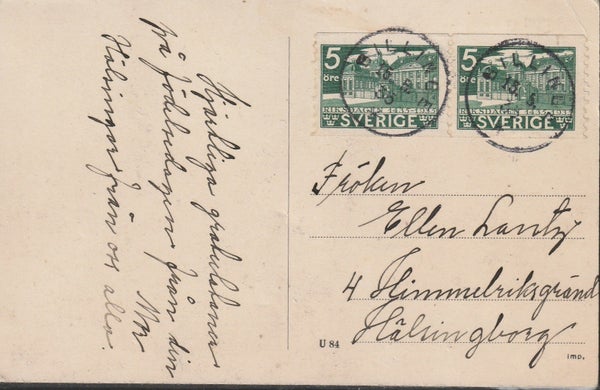 Hjärtliga gratulationer
på födelsedagen från din
Mor
Hälsningar från oss alla.
5
öre
RIKSDAGEN 1435-1935
SVERIGE
5
öre
RIKSDAGEN 1435-1935
SVERIGE
BILLINGE
BILLINGE
Fröken
Ellen Lantz
4 Himmelriksgränd
Hälsingborg
U 84
IMP.